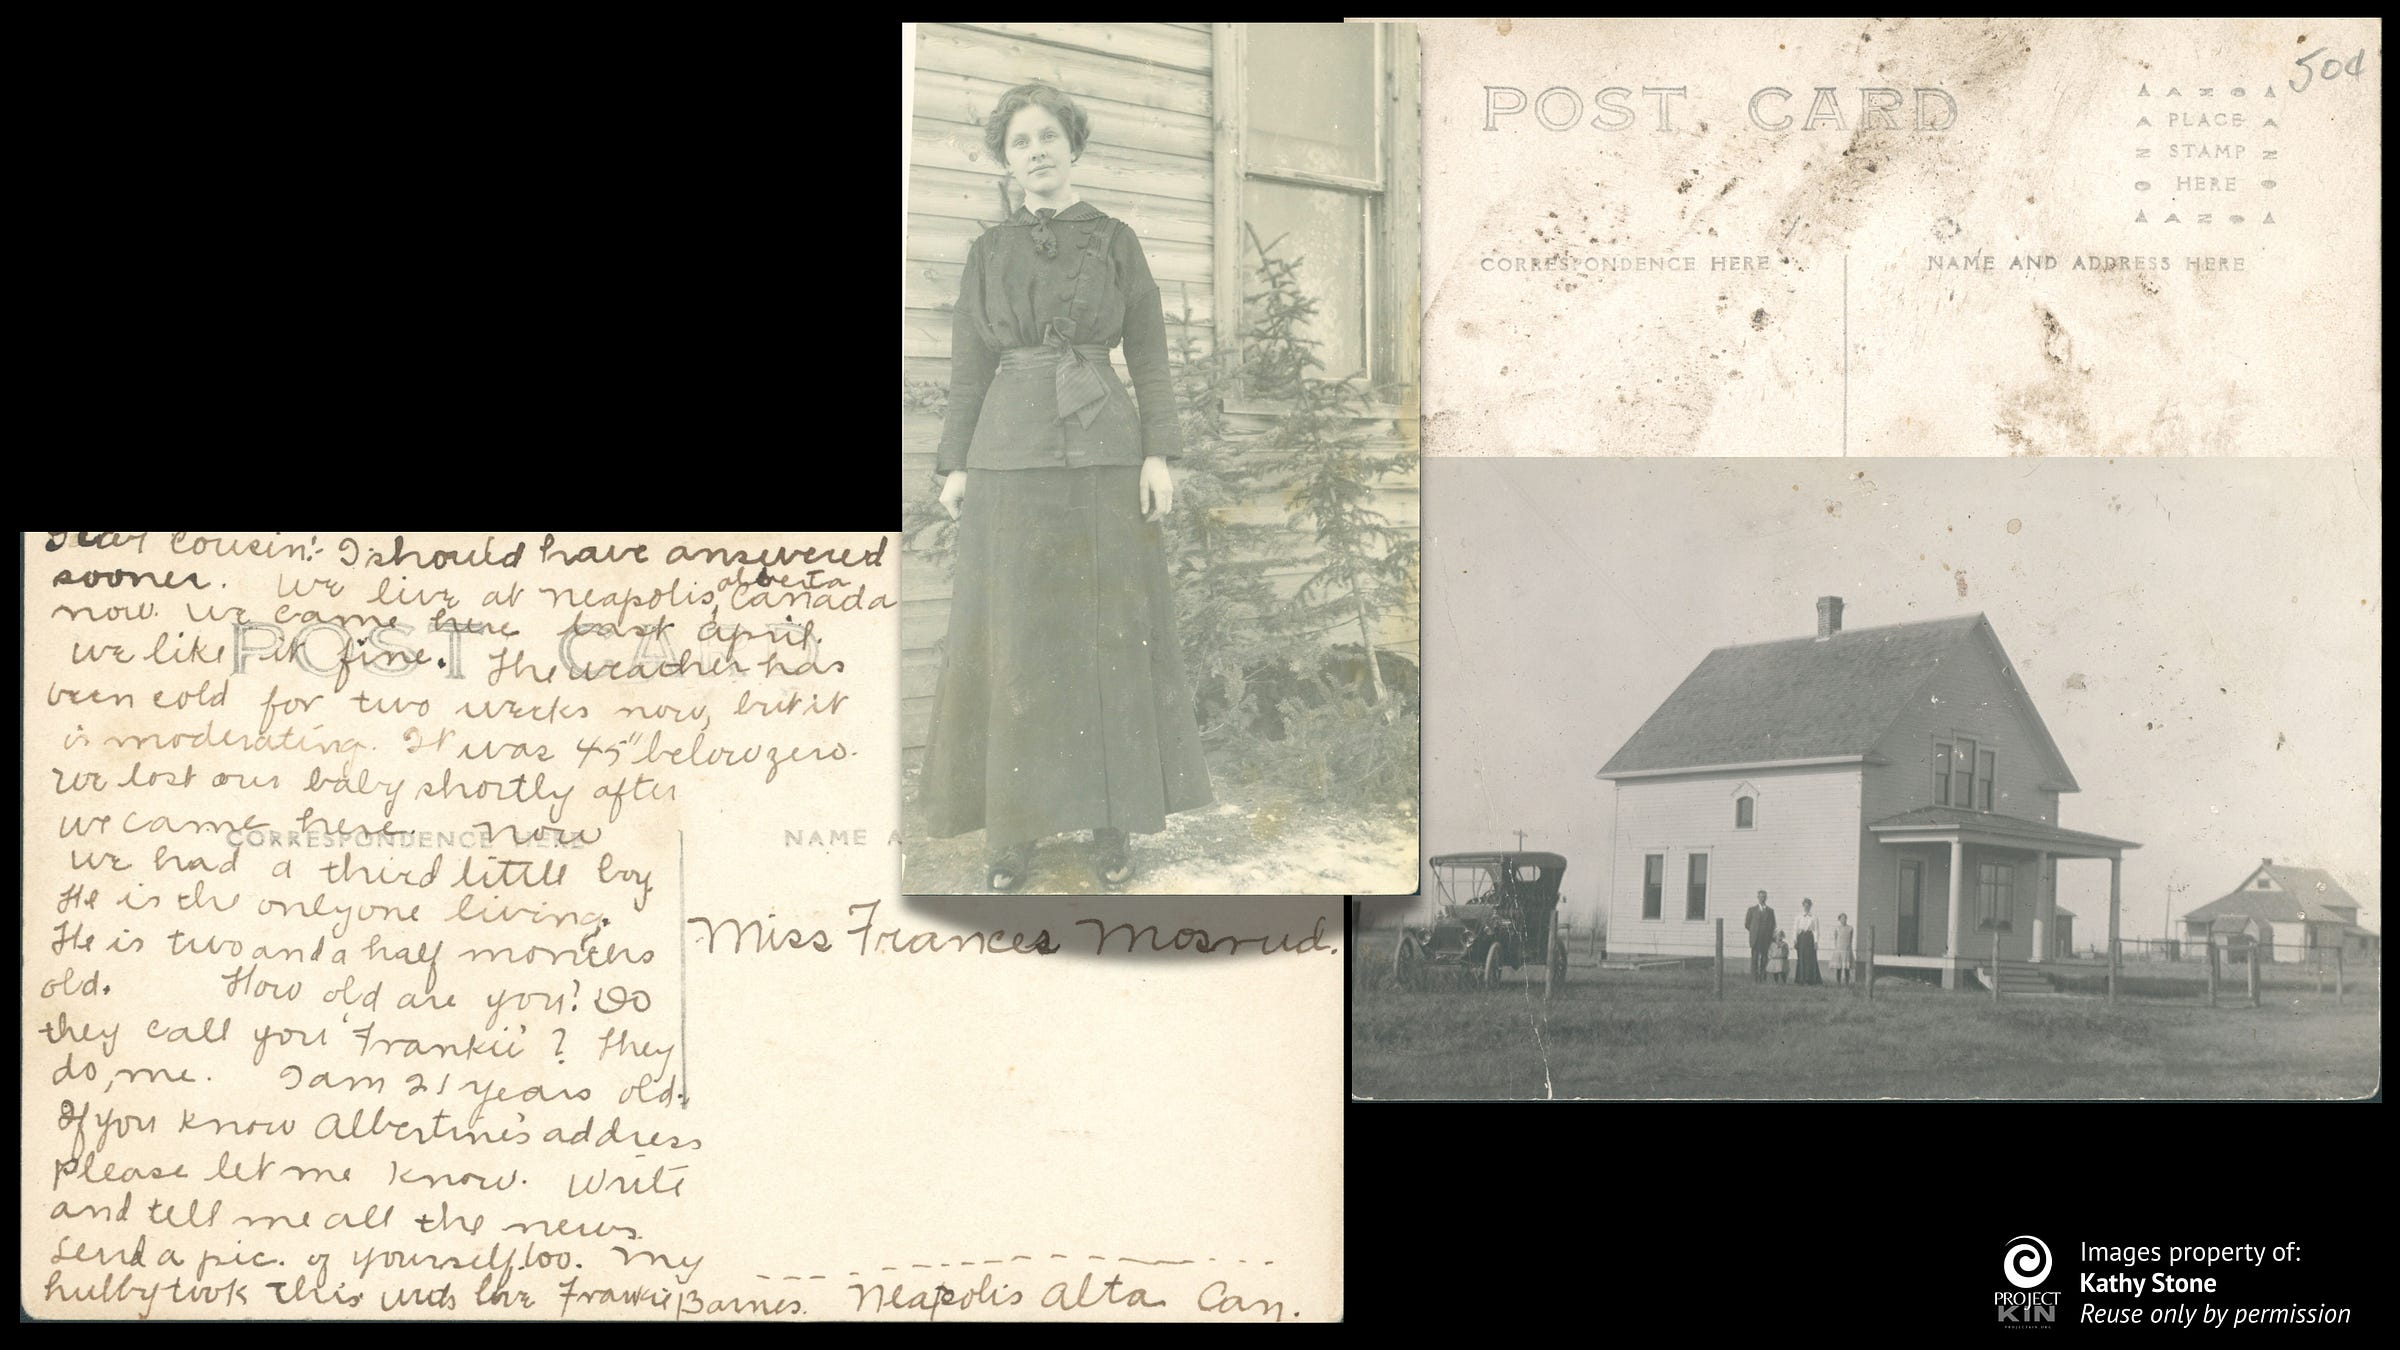 Dear Cousin:- I should have answered
sooner. We live at Neapolis, alberta Canada
now. We came here last april.
we like it fine. The weather has
been cold for two weeks now, but it
is moderating. It was 45" below zero.
we lost our baby shortly after
we came here. Now
we had a third little boy.
He is the only one living.
He is two and a half months
old. How old are you? Do
they call you 'Frankie'? They
do, me. I am 21 years old.
If you know Albertine's address
please let me know. Write
and tell me all the news.
Send a pic. of yourself too. My
hubby took this. with love Frankie Barnes.
POST CARD
CORRESPONDENCE HERE
NAME A
Miss Frances Mosrud.
Neapolis Alta. Can.
50¢
POST CARD
AZO
PLACE
STAMP
HERE
AZO
CORRESPONDENCE HERE
NAME AND ADDRESS HERE
PROJECT
KIN
Images property of:
Kathy Stone
Reuse only by permission